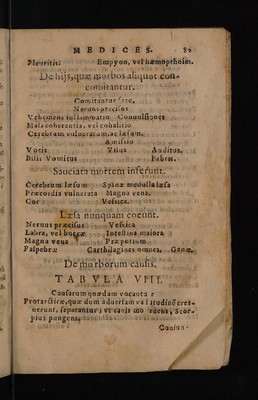 MEDICES. 82
Pleuritis Empyon, vel hæmopthoim.
De hijs, quæ morbos aliquot con-
comitantur.
Comitantur ferè,
Neruus præcisos
Vehemens inflammatio Conuulsiones
Mala coherentia, vel cohalitio
Cerebrum vulneratum, ac læsum,
Amissio
Vocis Visus Auditus.
Bilis Vomitus Febris.
Sauciata mortem inferunt.
Cerebrum læsum Spinæ medulla læsa
Præcordia vulnerata Magna vena.
Cor Vesica.
Læsa nunquam coeunt.
Neruus præcisus Vesica
Labra, vel buccæ Intestina maiora
Magna vena Præputium
Palpebræ Carthilagines omnes. Genæ.
De morborum causis.
TABVLA VIII.
Causarum quædam vocantur
Protarctiræ, quæ dum aduersam valitudinẽ cree-
uerunt, separantur, vt canis mordens, Scor-
pius pungens,
Consun-